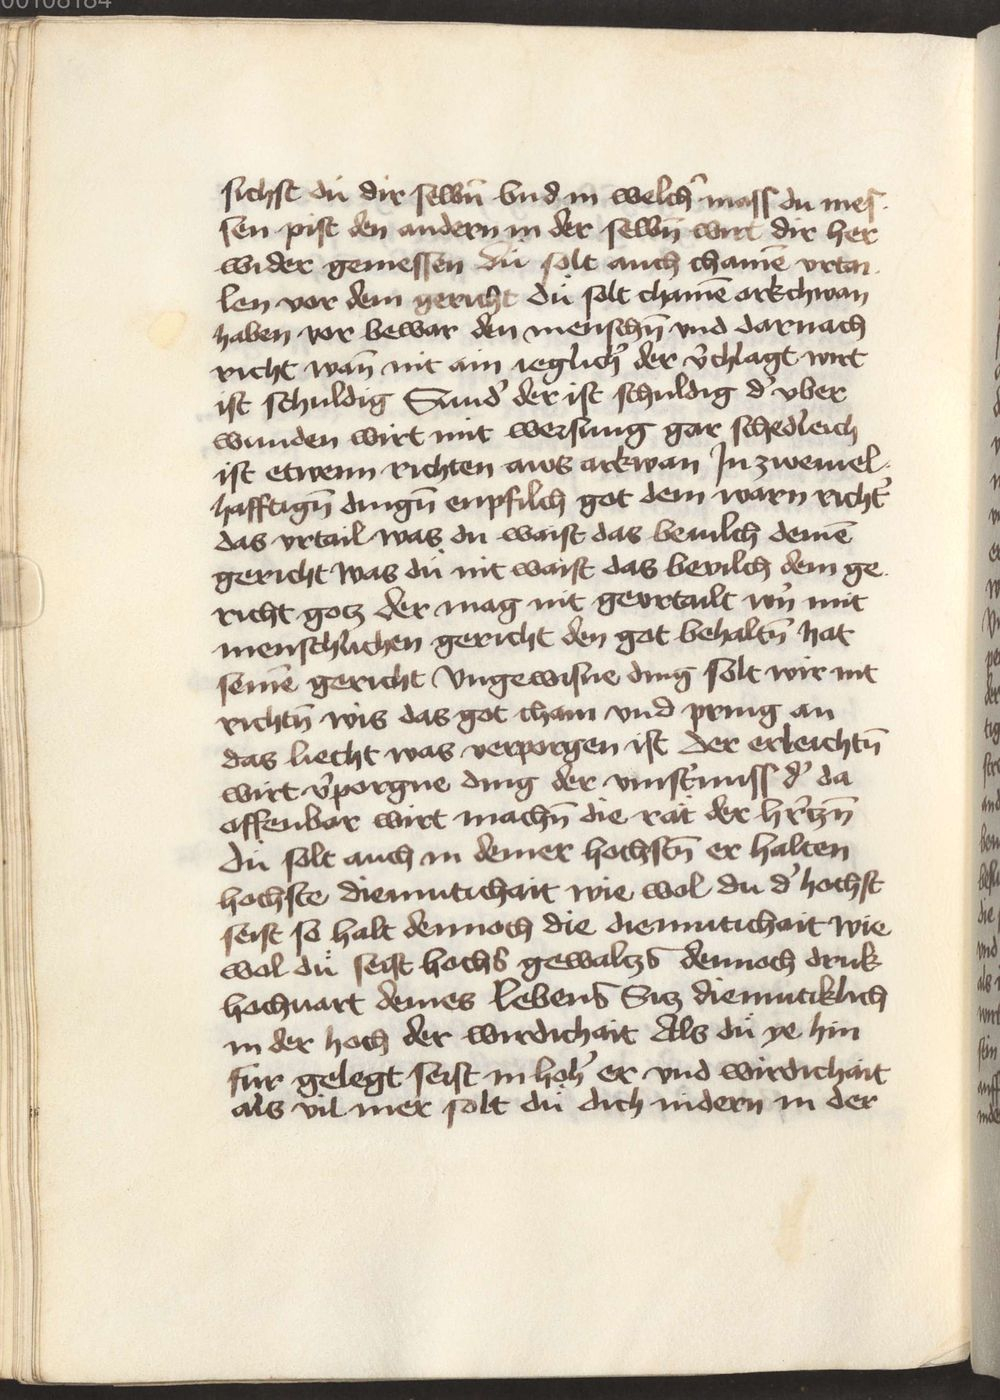 sichst dü dir sewñ vnd in welch᷑ mass du mes
sen pist den andern in der sewñ wirt dir her
wider gemessen Dü solt auch chainē vrtai
len vor dem gericht dü solt chainē arkchwan
haben vor bewar den menschñ vnd darnach
richt wañ nit ain ieglich᷑ der v᷑chlagt wirt
ist schuldig Sund᷑ der ist schuldig d᷑ vber
wunden wirt mit weysung gar schedleich
ist etwenn richten aws arkwan In zweiuel
hafftigñ dingñ enpfilch got dem warn richt᷑
das vrtail was du waist das beuilch deinē
gericht was dü nit waist das bevilch dem ge
richt gotz der mag nit gevrtailt w᷑n mit
menschlichen gericht den got behaltñ hat
seinē gericht Vngewisne ding solt wir nit
richtñ wis das got cham vnd pring an
das liecht was verporgen ist Der erleichtñ
wirt v᷑porgne ding der vinst᷑nuss d᷑ da
offenbar wirt machñ die rät der h᷑rtzñ
Dü solt auch in deiner hochstñ er halten
hochste diemutichait wie wol du d᷑ hochst
seist so halt dennoch die diemutichait wie
wol dü seist hochs gewaltzs dennoch druk
hochuart deines lebens Sitz diemutiklich
in der hoch der wirdichait Als dü ye hin
für gelegt seist in hoh᷑ er vnd wirdichait
als vil mer solt dü dich nidern in der